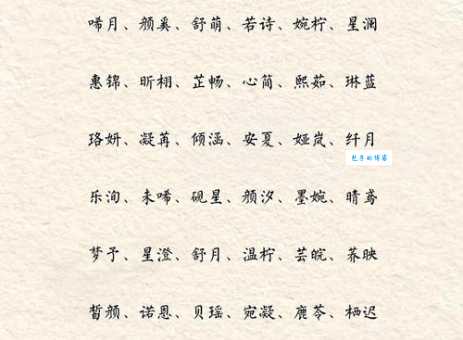 唏月、颜奚、舒萌、若诗、婉柠、星澜
惠锦、昕栩、芷畅、心简、熙茹、琳蓝
珞妍、凝苒、倾涵、安夏、娅岚、纤月
乐洵、未唏、砚星、颜汐、墨婉、晴鸢
梦予、星澄、舒月、温柠、芸皖、荞映
皙颜、诺恩、贝瑶、宛凝、鹿苓、栖迟